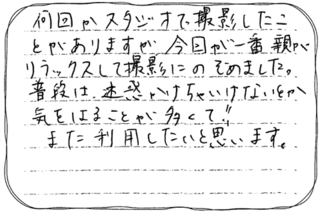 何回かスタジオで撮影したこ
とがありますが、今回が一番親が
リラックスして撮影にのぞめました。
普段は迷惑かけちゃいけないとか
気をはることが多くて!!
また利用したいと思います。